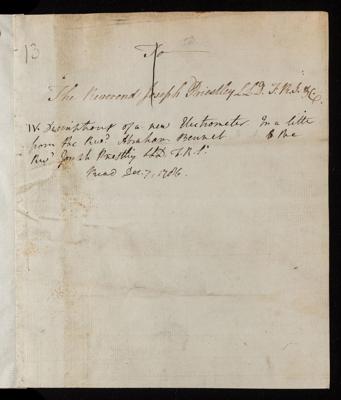 13
To
The Reverend Joseph Priestley LLD. F.R.S. &c
IV. Description of a new Electrometer. In a letter
from the Revd. Abraham Bennet to the
Revd. Joseph Priestley LLD. F.R.S.
Read Dec. 7, 1786.